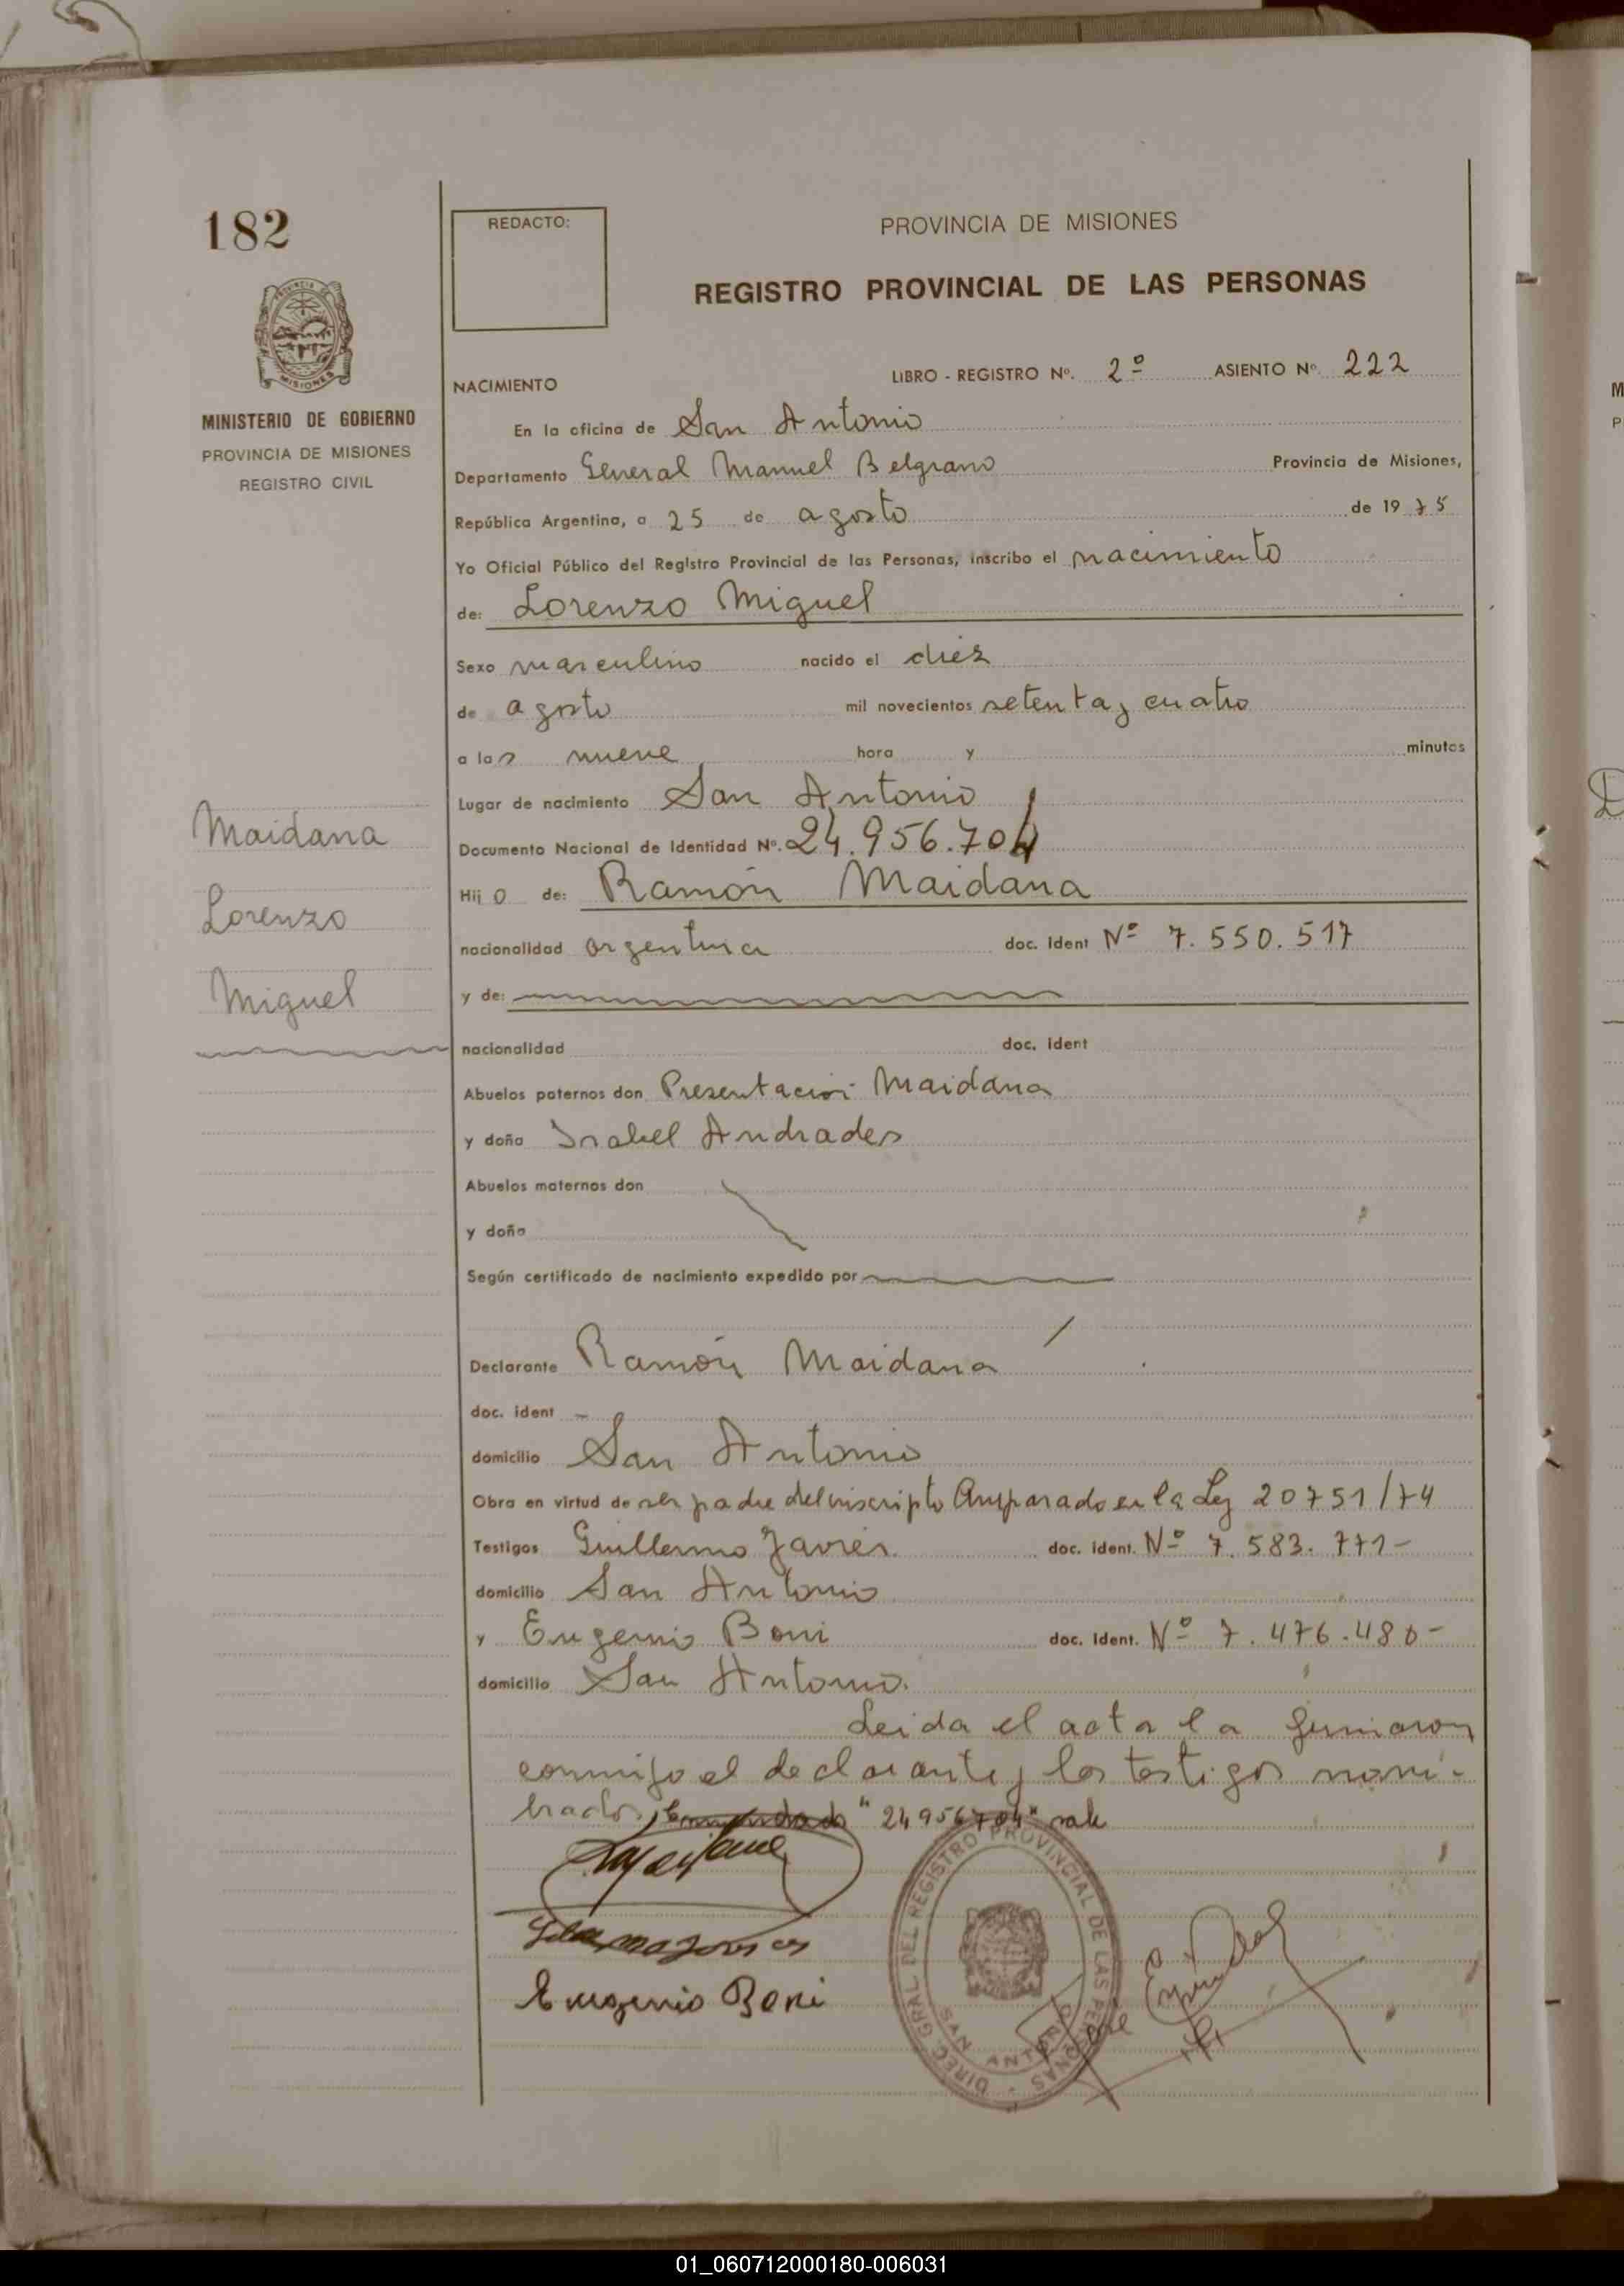 182
REDACTO:
PROVINCIA DE MISIONES
REGISTRO PROVINCIAL DE LAS PERSONAS
MINISTERIO DE GOBIERNO
PROVINCIA DE MISIONES
REGISTRO CIVIL
LIBRO - REGISTRO Nº. 2º ASIENTO Nº. 222
NACIMIENTO
En la oficina de San Antonio
Departamento General Manuel Belgrano Provincia de Misiones,
República Argentina, a 25 de agosto de 1975
Yo Oficial Público del Registro Provincial de las Personas, inscribo el nacimiento
de: Lorenzo Miguel
Sexo masculino nacido el diez
de agosto mil novecientos setenta y cuatro
a las nueve hora y minutos
Lugar de nacimiento San Antonio
Documento Nacional de Identidad Nº. 24.956.704
Hijo de: Ramón Maidana
nacionalidad argentina doc. Ident Nº 7.550.517
y de:
nacionalidad doc. ident
Abuelos paternos don Presentación Maidana
y doña Isabel Andrades
Abuelos maternos don
y doña
Según certificado de nacimiento expedido por
Declarante Ramón Maidana
doc. ident -
domicilio San Antonio
Obra en virtud de ser padre del inscripto Amparado en la Ley 20751/74
Testigos Guillermo Javier doc. ident. Nº 7.583.771-
domicilio San Antonio
y Eugenio Boni doc. Ident. Nº 7.476.480-
domicilio San Antonio.
Leida el acta la firmaron
conmigo el declarante y los testigos nom-
brados, Enmendado "24956704" vale
Maidana
Lorenzo
Miguel
Eugenio Boni
DIREC. GRAL DEL REGISTRO PROVINCIAL DE LAS PERSONAS
SAN ANTONIO
01_060712000180-006031